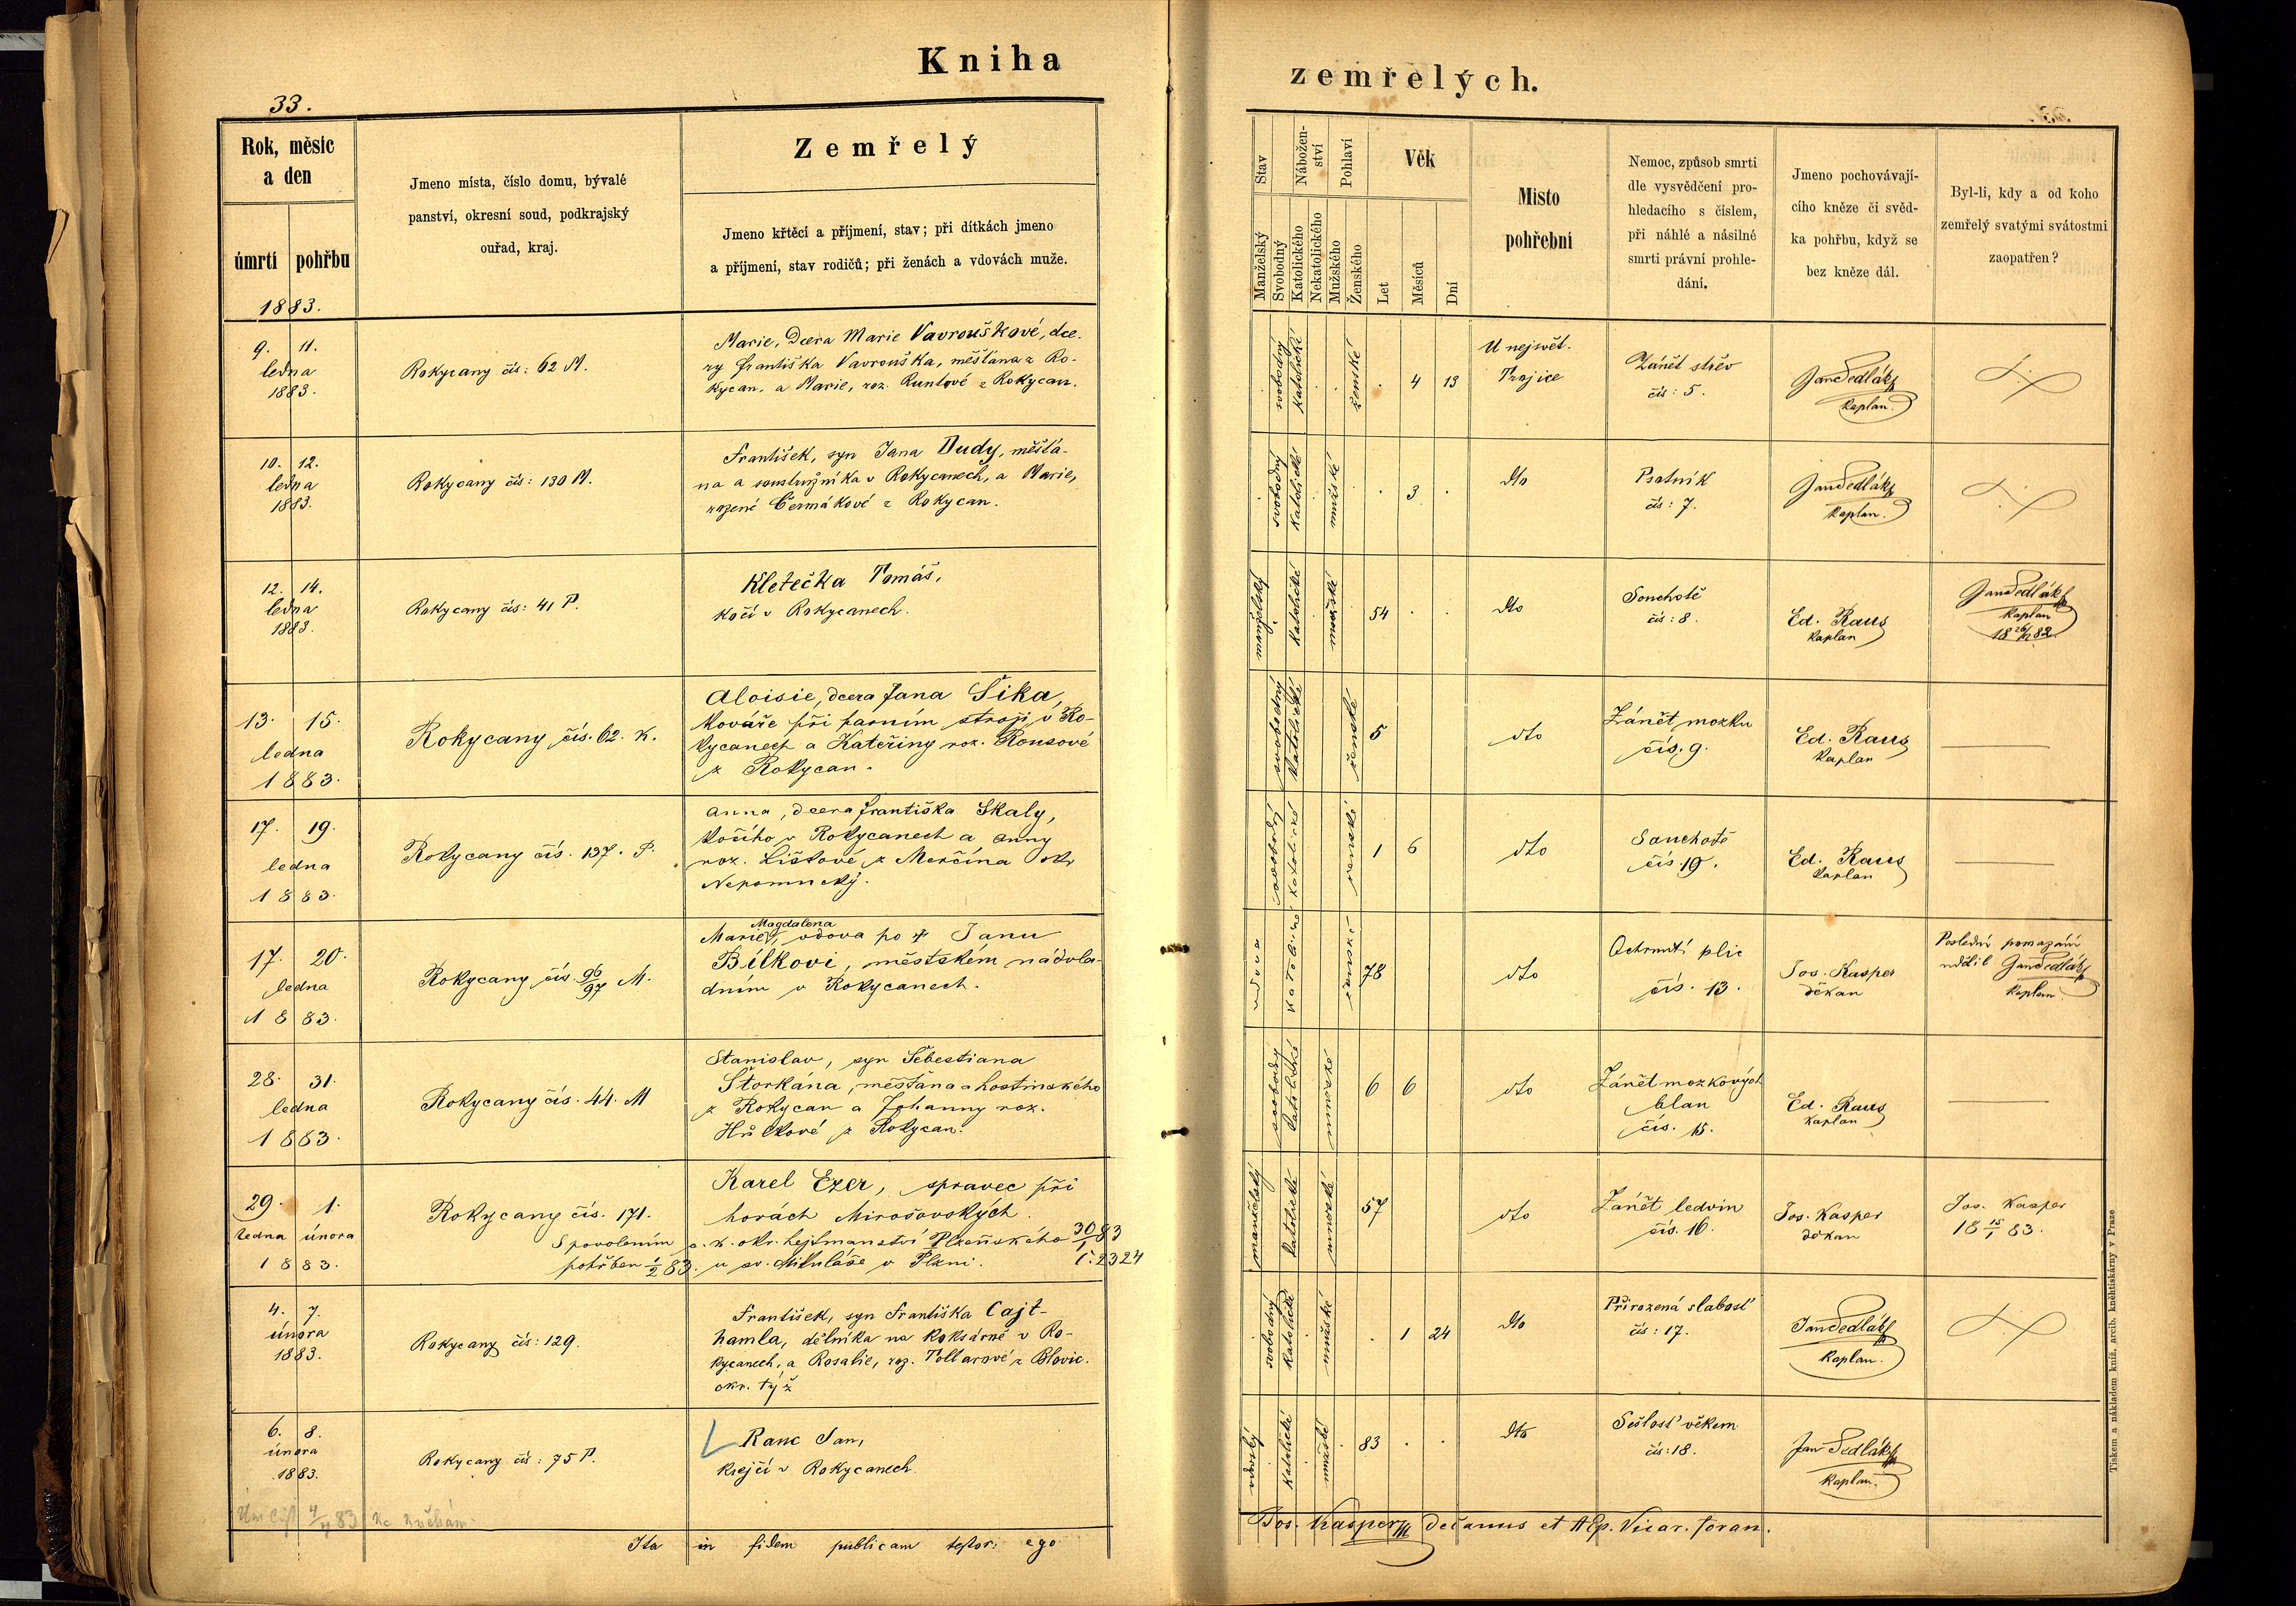 Kniha zemřelých.
33.
Rok, měsíc
a den
úmrtí pohřbu
1883.
Jmeno místa, číslo domu, bývalé
panství, okresní soud, podkrajský
ouřad, kraj.
Zemřelý
Jmeno křtěcí a příjmení, stav; při dítkách jmeno
a příjmení, stav rodičů; při ženách a vdovách muže.
Stav
Manželský
Svobodný
Nábožen-
ství
Katolického
Nekatolického
Pohlaví
Mužského
Ženského
Věk
Let
Měsíců
Dní
Místo
pohřební
Nemoc, způsob smrti
dle vysvědčení pro-
hledacího s číslem,
při náhlé a násilné
smrti právní prohle-
dání.
Jmeno pochovávají-
cího kněze či svěd-
ka pohřbu, když se
bez kněze dál.
Byl-li, kdy a od koho
zemřelý svatými svátostmi
zaopatřen?
9. 11.
ledna
1883.
Rokycany čís: 62 M.
Marie, dcera Marie Vavrouškové, dce-
ry Františka Vavrouška, měšťana z Ro-
kycan, a Marie, roz. Runtové z Rokycan.
svobodný katolické ženské
. 4 13
U nejsvět.
Trojice
Zánět střev
čís: 5.
Jan Sedlák
kaplan.
10. 12.
ledna
1883.
Rokycany čís: 130 M.
František, syn Jana Dudy, měšťa-
na a soustružníka v Rokycanech, a Marie,
rozené Čermákové z Rokycan.
svobodný katolické mužské
. 3 .
dto
Psotník
čís: 7.
Jan Sedlák
kaplan.
12. 14.
ledna
1883.
Rokycany čís: 41 P.
Kletečka Tomáš,
kočí v Rokycanech.
manželský katolické mužské
54 . .
dto
Souchotě
čís: 8.
Ed. Raus
kaplan
Jan Sedlák
kaplan
13. 15.
ledna
1883.
Rokycany čís. 62. K.
Aloisie, dcera Jana Šika,
kováře při parním stroji v Ro-
kycanech a Kateřiny roz. Rousové
z Rokycan.
svobodný katolické ženské
5
dto
Zánět mozku
čís. 9.
Ed. Raus
kaplan
17. 19.
ledna
1883.
Rokycany čís. 137. P.
Anna, dcera Františka Skaly,
kočího v Rokycanech a Anny
roz. Lištové z Merčína okr
Nepomucký.
svobodný katolické ženské
1 6
dto
Souchotě
čís 19.
Ed. Raus
kaplan
17. 20.
ledna
1883.
Rokycany čís. 96/97 M.
Magdalena
Marie, vdova po † Janu
Bílkovi, městském nádvla-
dním v Rokycanech.
vdova katolické ženské
78
dto
Ochrnutí plic
čís. 13.
Jos. Kasper
děkan
Poslední pomazání
udělil Jan Sedlák
kaplan
28. 31.
ledna
1883.
Rokycany čís. 44. M
Stanislav, syn Šebestiana
Štorkána, měšťana a hostinského
z Rokycan a Johanny roz.
Hůlkové z Rokycan.
svobodný katolické mužské
6 6
dto
Zánět mozkových
blan
čís. 15.
Ed. Raus
kaplan
29. 1.
ledna února
1883.
Rokycany čís. 171.
Karel Ezer, spravec při
horách Mirošovských.
S povolením c. k. okr. hejtmanství Plzeňského 30/1 83
pohřben 1/2 83. u sv. Mikuláše v Plzni. č. 2324
manželský katolické mužské
57
dto
Zánět ledvin
čís. 16.
Jos. Kasper
děkan
Jos. Kasper
18 15/1 83.
4. 7.
února
1883.
Rokycany čís: 129.
František, syn Františka Cajt-
hamla, dělníka na koksárně v Ro-
kycanech, a Rosalie, roz. Tollarové z Blovic.
okr. týž
svobodný katolické mužské
. 1 24
dto
Přirozená slabosť
čís: 17.
Jan Sedlák
kaplan.
6. 8.
února
1883.
Rokycany čís: 75 P.
Ranc Jan,
krejčí v Rokycanech.
vdovský katolické mužské
83 . .
dto
Sešlosť věkem
čís: 18.
Jan Sedlák
kaplan.
Ita in fidem publicam testor ego Jos. Kasper decanus et AEp. Vicar. foran.
Tiskem a nákladem kníž. arcib. kněhtiskárny v Praze